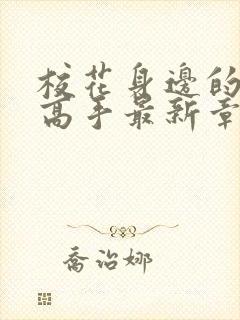 校花身邊的
高手最新章
喬治娜